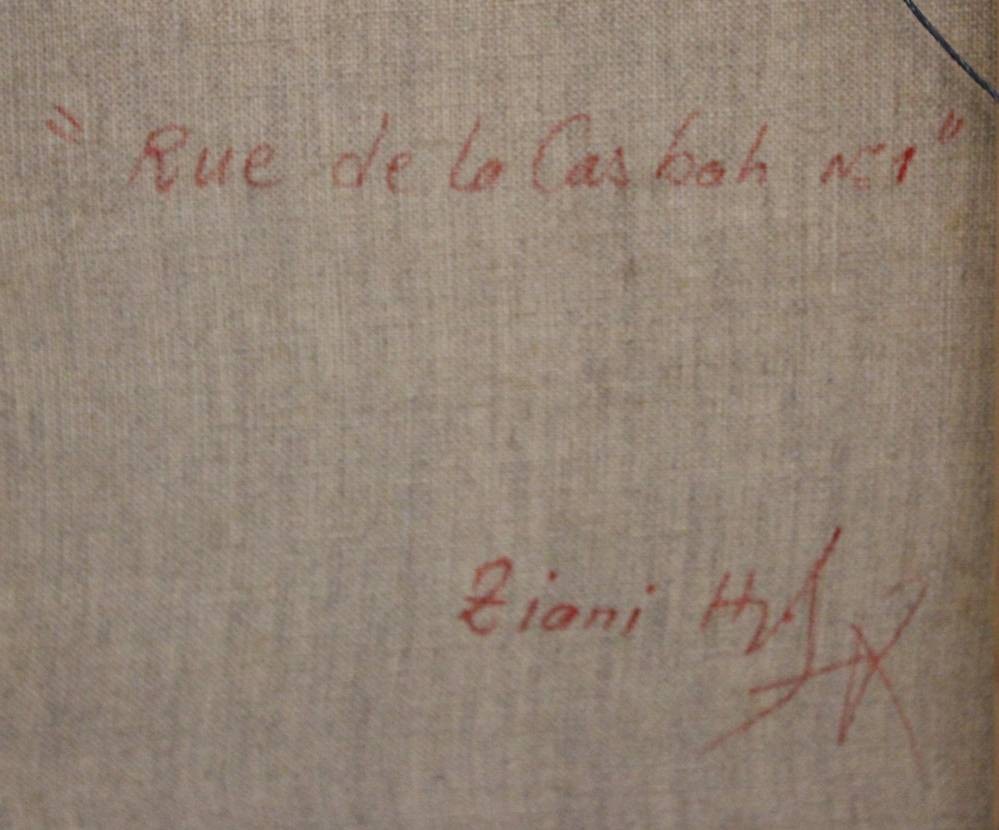 "Rue de la Casbah N:1"
Ziani